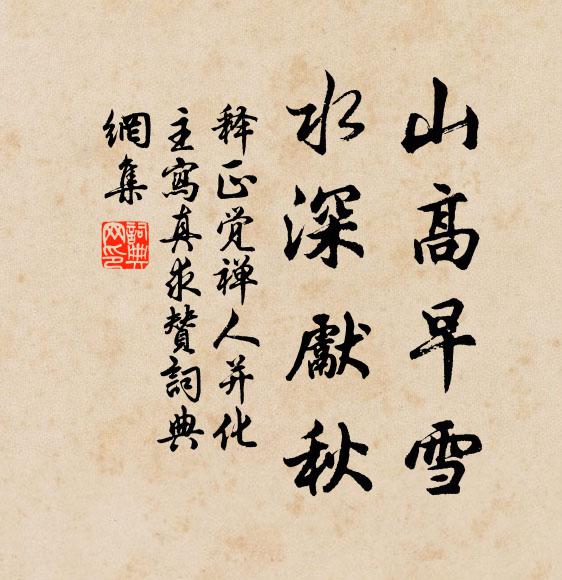 山高早雪
水深獻秋
释正觉禅人并化
主寫真求贊詞典
網集
詞典網印